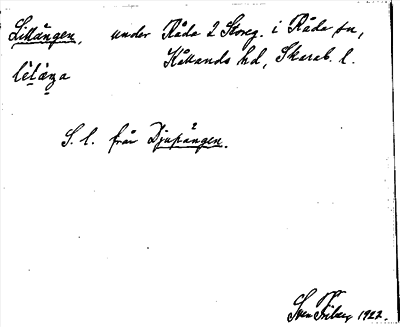 Lillängen, under Råda 2 Storeg. i Råda sn,
Kållands hd, Skarab. l.
S. l. från Djupängen.
Sven 1922.